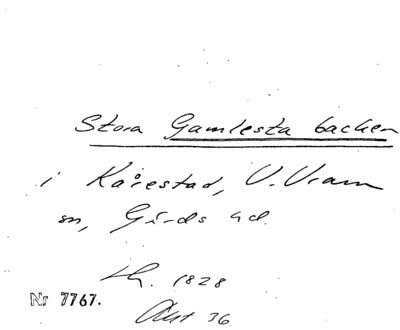 Stora Gamlesta backen
i Kårestad, V. Vram
sn, Gärds hd.
1828
Nr 7767.
36